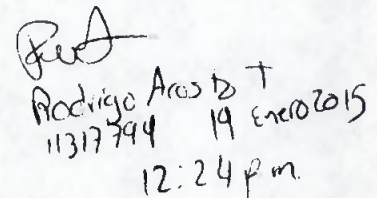 Rodrigo Acosta T
11317794 19 Enero 2015
12:24 p.m.